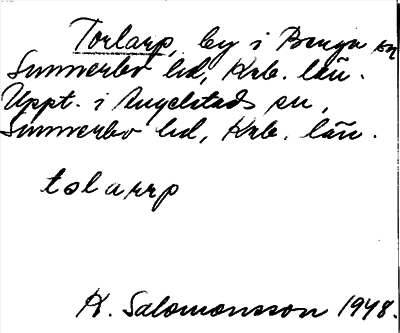 Torlarp, by i Berga sn
Sunnerbo hd, Krb. län.
Uppt. i Angelstads sn,
Sunnerbo hd, Krb. län.
tolarrp
K. Salomonsson 1948.